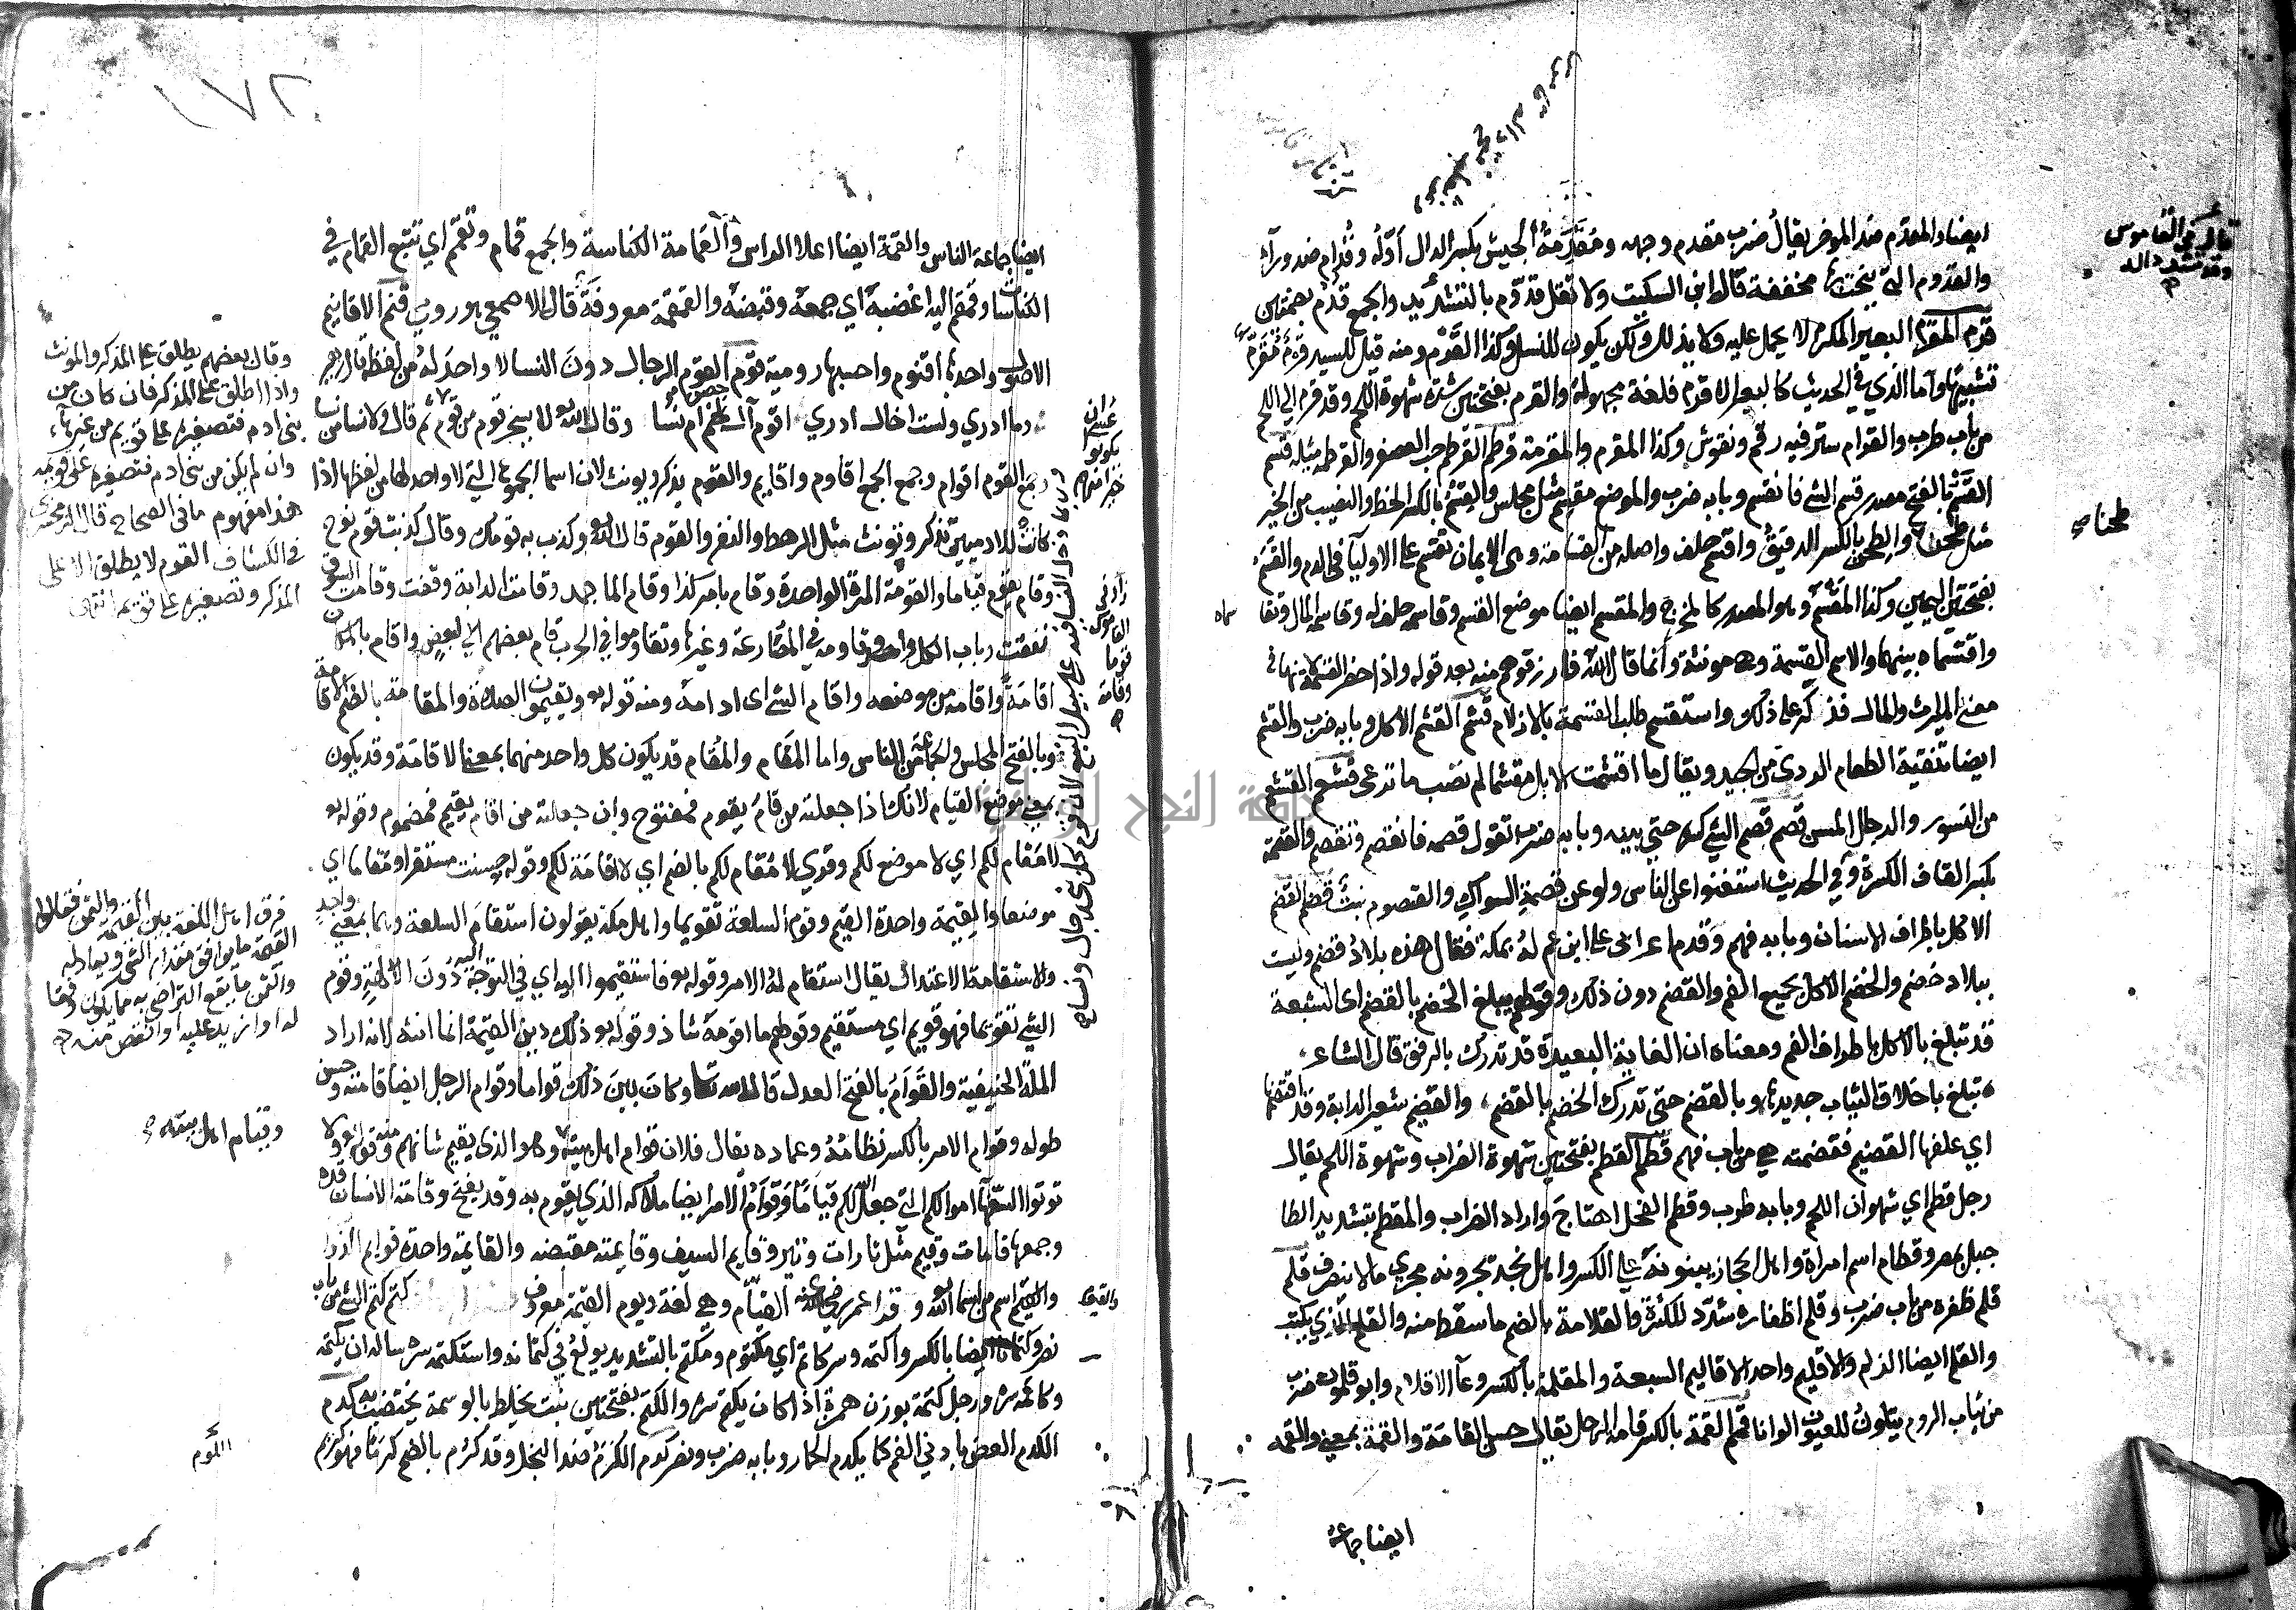 ايضا والمقدم ضد الموخر يقال ضرب مقدم وجهه ومقدمة الجيش بكسر الدال اوله وقدام ضد ورآء
والقدوم التي ينحت بها مخففة قال ابن السكيت ولا تقل قدّوم بالتشديد والجمع قدم بضمتين
قرم المقرم البعير المكرم لا يحمل عليه ولا يذلل ولكن يكون للنسل وكذا القرم ومنه قيل للسيد قرم مقرم
تشبيها واما الذي في الحديث كالبعير الاقرم فلغة مجهولة والقرم بفتحتين شدة شهوة اللحم وقد قرم الي اللحم
من باب طرب والقرام ستر فيه رقم ونقوش وكذا المقرم والمقرمة قرطم القرطم حب العصفر والقرطم مثله قسم
القسم بالفتح مصدر قسم الشي فانقسم وبابه ضرب والموضع مقسم مثل مجلس والقسم بالكسر الحظ والنصيب من الخير
مثل طحن والطحن بالكسر الدقيق واقسم حلف واصله من القسامة وهي الايمان تقسم على الاوليآ في الدم والقسم
بفتحتين اليمين وكذا المقسم وهو المصدر كالمخرج والمقسم ايضا موضع القسم وقاسمه حلف له وقاسمه المال وتقا
سماه
واقتسماه بينهما والاسم القسمة وهي مونثة وانما قال الله فارزقوهم منه بعد قوله واذا حضر القسمة لانها في
معني الميراث والمال فذكر على ذلك واستقسم طلب القسمة بالازلام قشم القشم الاكل وبابه ضرب والقشم
ايضا تنقية الطعام الردي من الجيد ويقال ما اقتشمت الابل مقشما لم تصب ما ترعى قشعم القشعم
من النسور والرجال المسن قصم قصم الشي كسره حتي يبين وبابه ضرب تقول قصمه فانقصم وتقصم والقصمة
بكسر القاف الكسرة وفي الحديث استغنوا عن الناس ولو عن قصمة السواك والقيصوم نبت قضم القضم
الاكل باطراف الاسنان وبابه فهم وقدم اعرابى على ابن عم له بمكة فقال هذه بلاد قضم وليست
ببلاد خضم والخضم الاكل بجميع الفم والقضم دون ذلك وقولهم يبلغ الخضم بالقضم اى الشبعة
قد تبلغ بالاكل باطراف الفم ومعناه ان الغاية البعيدة قد تدرك بالرفق قال الشاعر
تبلغ باخلاق الثياب جديدها وبالقضم حتى تدرك الخضم بالقضم والقضيم شعير الدابة وقد اقضمها
اي علفها القضيم فقضمته هي من باب فهم قطم القطم بفتحتين شهوة الضراب وشهوة اللحم يقال
رجل قطم اي شهوان اللحم وبابه طرب وقطم الفحل اهتاج واراد الضراب والمقطم بتشديد الطا
جبل بمصر وقطام اسم امراة واهل الحجاز يبنونه على الكسر واهل نجد يجرونه مجري ما لا ينصرف قلم
قلم ظفره من باب ضرب وقلم اظفاره شدد للكثرة والقلامة بالضم ما سقط منه والقلم الذي يكتب
والقلم ايضا الزلم والاقليم واحد الاقاليم السبعة والمقلمة بالكسر وعآ الاقلام وابو قلمون ضرب
من ثياب الروم يتلون للعيون الوانا قمم القمة بالكسر قامة الرجل يقال حسن القامة والقمة بمعني والقمة
ايضا جماعة
قال في القاموس
وقد تشدد داله
طحنا صح
ايضا جماعة الناس والقمة ايضا اعلا الراس والقمامة الكناسة والجمع قمام وتقمم اي تتبع القمام في
الكناسات وقمقم اليه اغضبه اي جمعه وقبضه والقمقمة معروفة قال الاصمعي هو رومي قنم الاقانيم
الاصول واحدها اقنوم واحسبها رومية قوم القوم الرجال دون النسا لا واحد له من لفظه قال زهير
وما ادري ولست اخال ادري اقوم آل حصن ام نسا وقال الله لا يسخر قوم من قوم ثم قال ولا نسا من نسا
وجمع القوم اقوام وجمع الجمع اقاوم واقايم والقوم يذكر ويونث لان اسما الجموع التي لا واحد لها من لفظها اذا
كانت للادميين تذكر وتونث مثل الرهط والنفر والقوم قال الله وكذب به قومك وقال كذبت قوم نوح
وقام يقوم قياما والقومة المرة الواحدة وقام بامر كذا وقام الما جمد وقامت الدابة وقفت وقامت السوق
نفقت وباب الكل واحد وقاومه في المصارعة وغيرها وتقاوموا في الحرب قام بعضهم الي بعض واقام بالمكان
اقامة واقامه من موضعه واقام الشي اى ادامه ومنه قوله ويقيمون الصلاة والمقامة بالضم الاقامة
وبالفتح المجلس والجماعة من الناس واما المقام والمقام قد يكون كل واحد منهما بمعني الاقامة وقد يكون
بمعني موضع القيام لانك اذا جعلته من قام يقوم فمفتوح وان جعلته من اقام يقيم فمضموم وقوله
لا مقام لكم اي لا موضع لكم وقري لا مقام لكم بالضم اي لا اقامة لكم وقوله حسنت مستقرا ومقاما اي
موضعا والقيمة واحدة القيم وقوم السلعة تقويما واهل مكة يقولون استقام السلعة وهما بمعني واحد
والاستقامة الاعتدال يقال استقام له الامر وقوله فاستقيموا اليه اي في التوجه اليه دون الالهة وقوم
الشي تقويما فهو قويم اي مستقيم وقولهم ما اقومه شاذ وقوله وذلك دين القيمة انما انثه لانه اراد
الملة الحنيفية والقوام بالفتح العدل قال الله تعا وكان بين ذلك قواما وقوام الرجل ايضا قامته وحسن
طوله وقوام الامر بالكسر نظامه وعماده يقال فلان قوام اهل بيته وهو الذي يقيم شانهم ومنه قوله ولا
توتوا السفهآ اموالكم التي جعل الله لكم قياما وقوام الامر ايضا ملاكه الذي يقوم به وقد يفتح وقامة الانسان قده
وجمعها قامات وقيم مثل تارات وتير وقايم السيف وقايمته مقبضه والقايمة واحدة قوايم الدواب
والقيوم اسم من اسما الله وقرا عمر رضي الله عنه القيّام وهي لغة ويوم القيمة معروف كتم كتم الشي من باب
نصر وكتمانا ايضا بالكسر واكتتمه وسر كاتم اي مكتوم ومكتم بالتشديد بولغ في كتمانه واستكتمه سره ساله ان يكتمه
وكاتمه سره ورجل كتمة بوزن همزة اذا كان يكتم سره والكتم بفتحتين نبت يخلط بالوسمة يختضب به كدم
الكدم العض بادني الفم كما يكدم الحمار وبابه ضرب ونصر كرم الكرم ضد البخل وقد كرم بالضم كرما فهو كريم
وقال بعضهم يطلق على المذكر والمونث
واذا اطلق على المذكر فان كان من
بني ادم فتصغيره على قويم من غير هاء
وان لم يكن من بني ادم فتصغيره على قويمة
هذا مفهوم ما في الصحاح قال الزمخشري
في الكشاف القوم لا يطلق الا على
المذكر وتصغيره على قويم انتهى
فرق اهل اللغة بين القيمة والثمن فقالوا
القيمة ما يوافق مقدار الشي ويعادله
والثمن ما يقع التراضي به مما يكون وفقا
له او ازيد عليه او انقص منه
وقيام اهل بيته صح